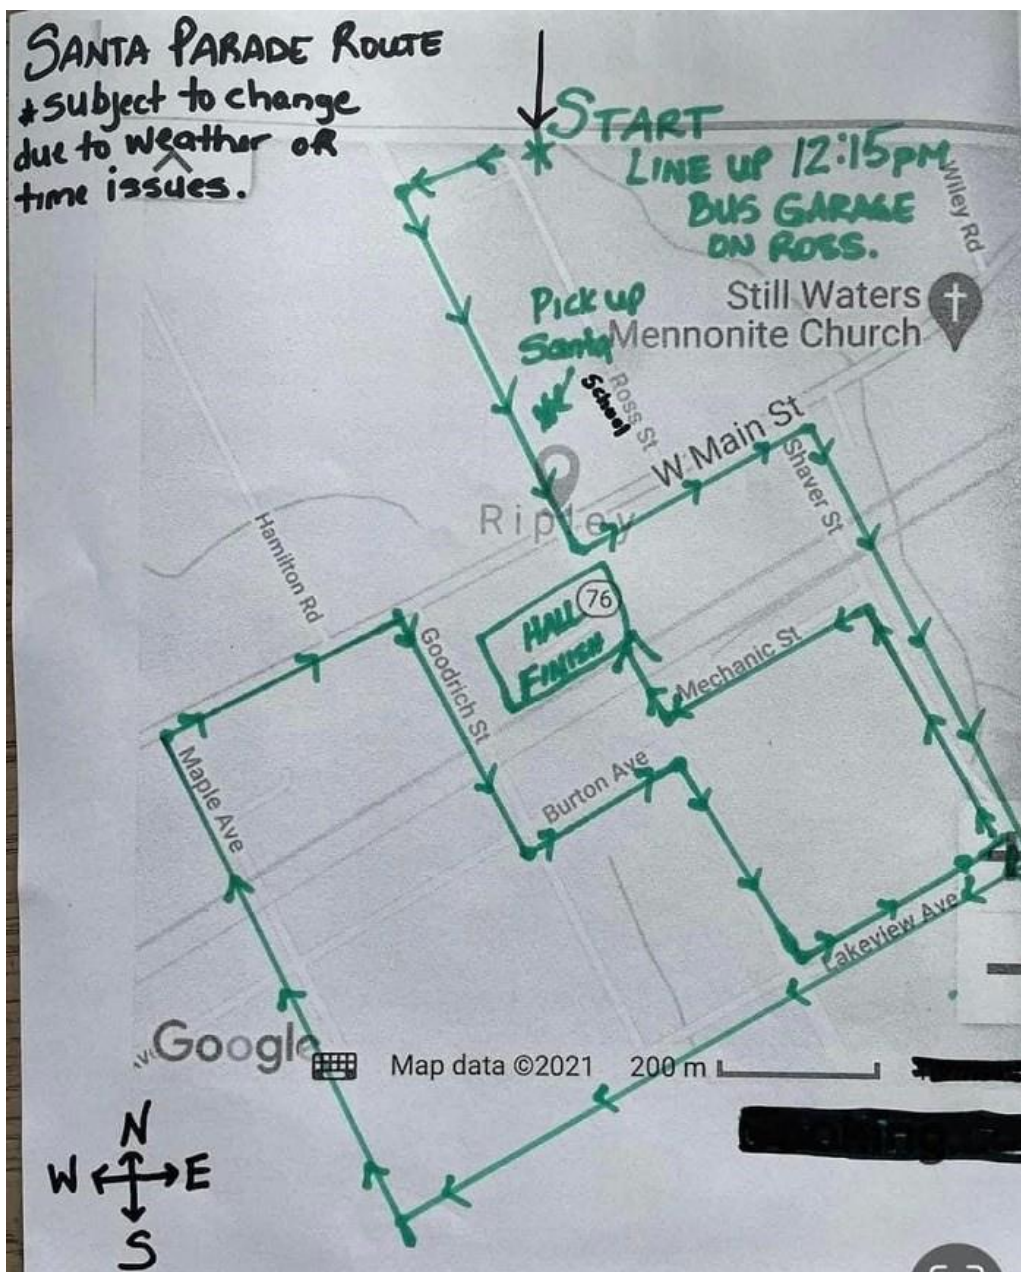 SANTA PARADE ROUTE
*subject to change
due to weather OR
time issues.
START
LINE UP 12:15pm
BUS GARAGE
ON ROSS.
Wiley Rd
Pick up
Santa
School
Still Waters
Mennonite Church
Ross St
W Main St
Shaver St
Ripley
Hamilton Rd
76
HALL
FINISH
Goodrich St
Mechanic St
Maple Ave
Burton Ave
Lakeview Ave
Google
Map data ©2021 200 m
N
W E
S